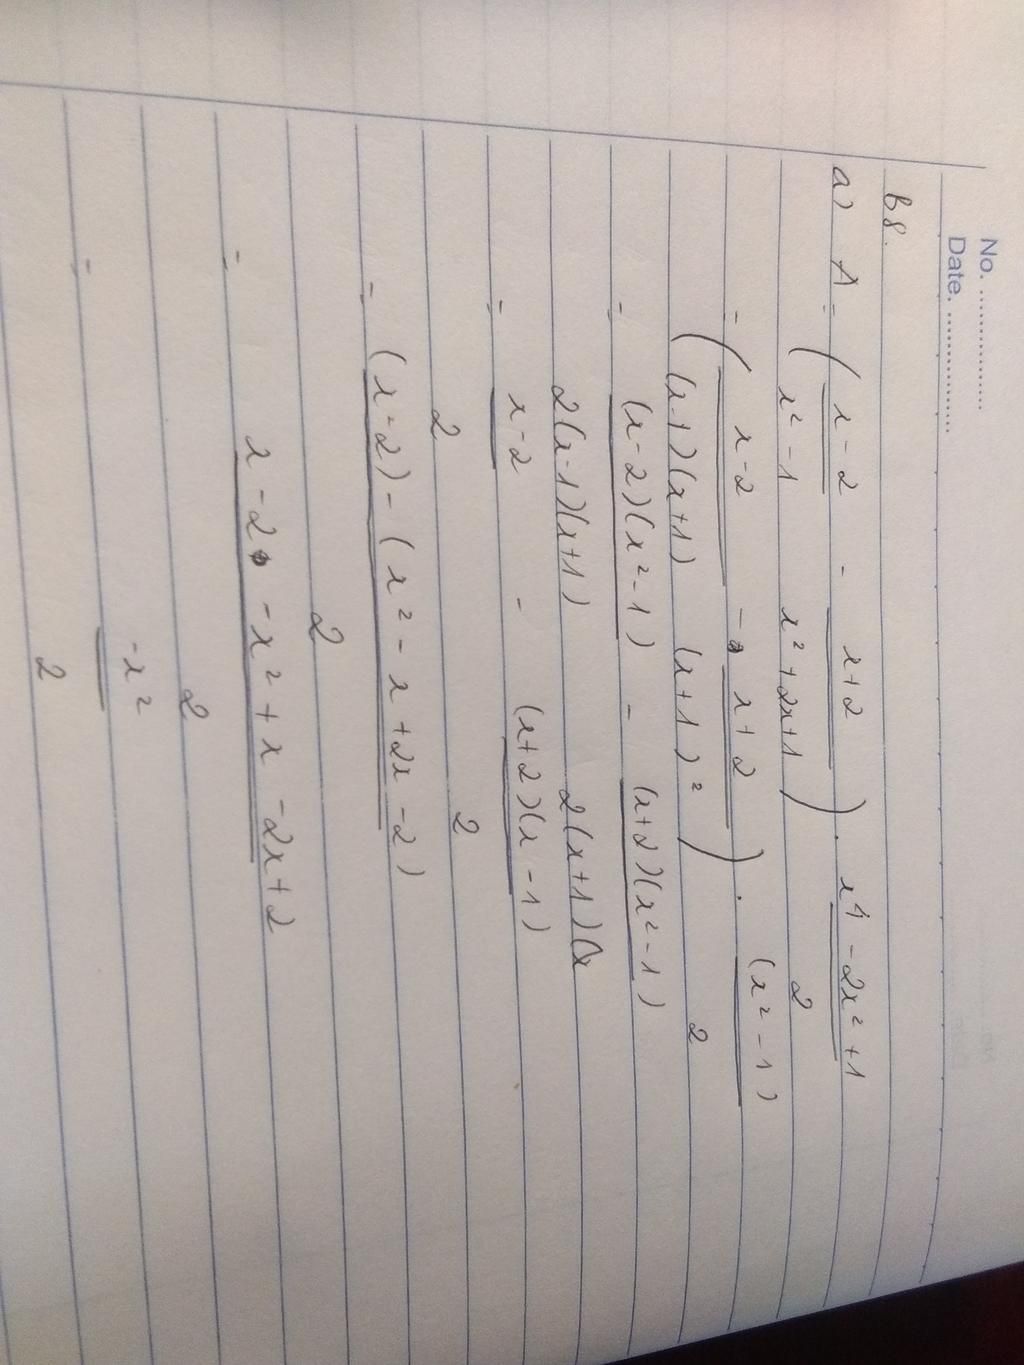 No. ..............
Date. ..............
B8.
a) A = ( x - 2 / x² - 1 - x+2 / x² + 2x+1 ) . x⁴ - 2x² + 1 / 2
= ( x - 2 / (x-1)(x+1) - x + 2 / (x+1)² ) . (x² - 1) / 2
= (x - 2)(x² - 1) / 2(x-1)(x+1) - (x+2)(x² - 1) / 2(x+1)(x
= x - 2 / 2 - (x+2)(x - 1) / 2
= (x - 2) - (x² - x + 2x - 2) / 2
= x - 2 - x² + x - 2x + 2 / 2
= -x² / 2